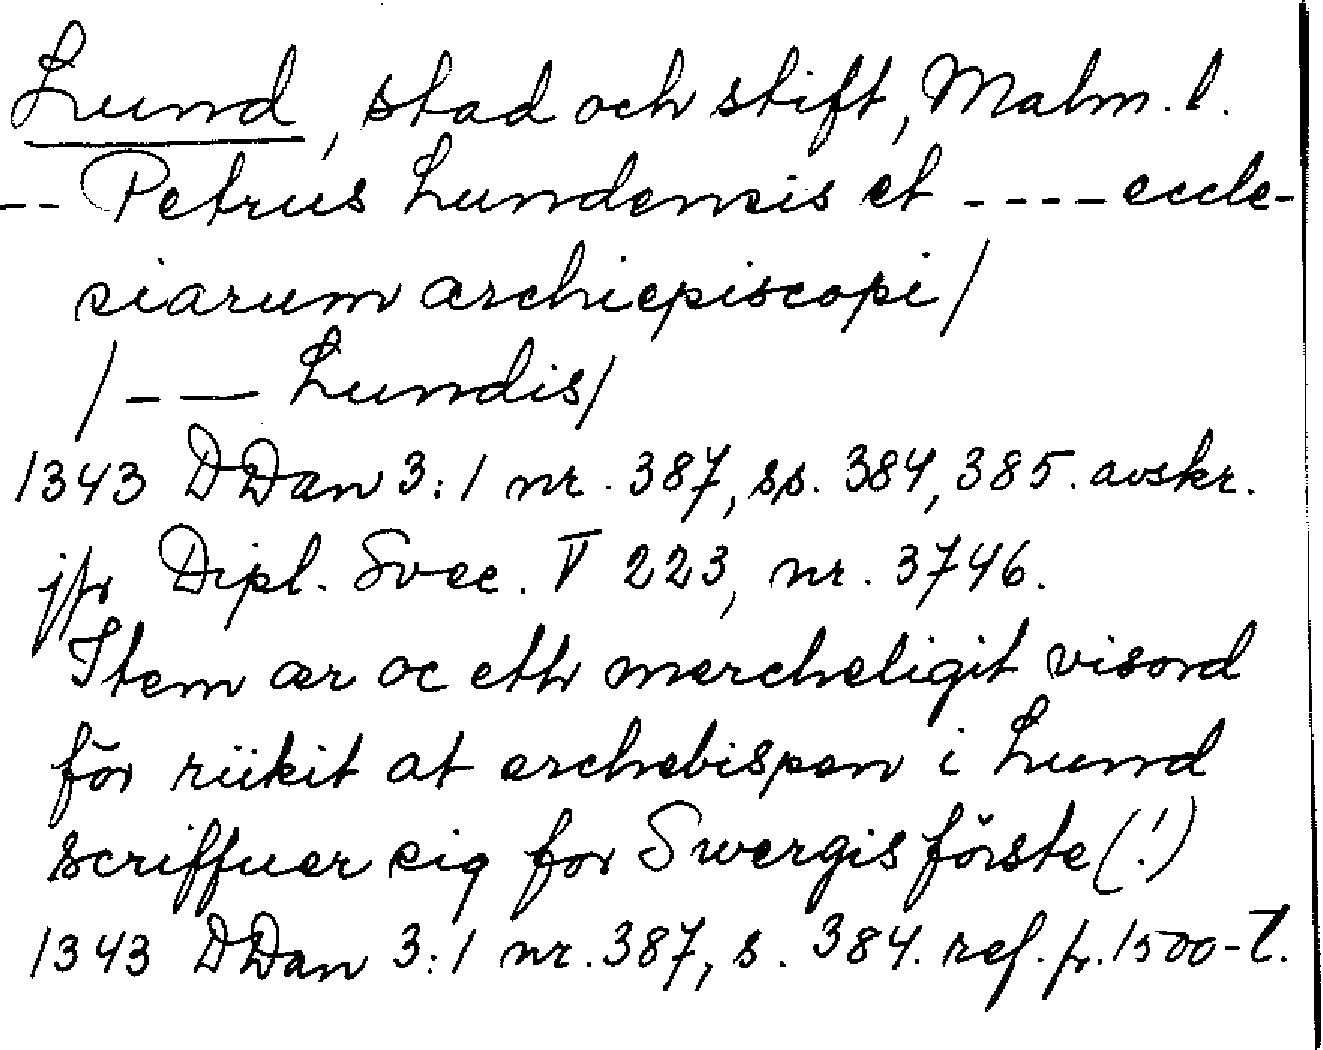 Lund, stad och stift, Malm. l.
-- Petrus Lundensis et ---- eccle-
siarum archiepiscopi/
/--- Lundis/
1343 DDan 3:1 nr. 387, ss. 384, 385. avskr.
jfr Dipl. Svec. V 223, nr. 3746.
Item ær oc eth mercheligit visord
för riikit at erchebispen i Lund
scriffuer sig for Swergis förste (!)
1343 DDan 3:1 nr. 387, s. 384. ref. fr. 1500-t.